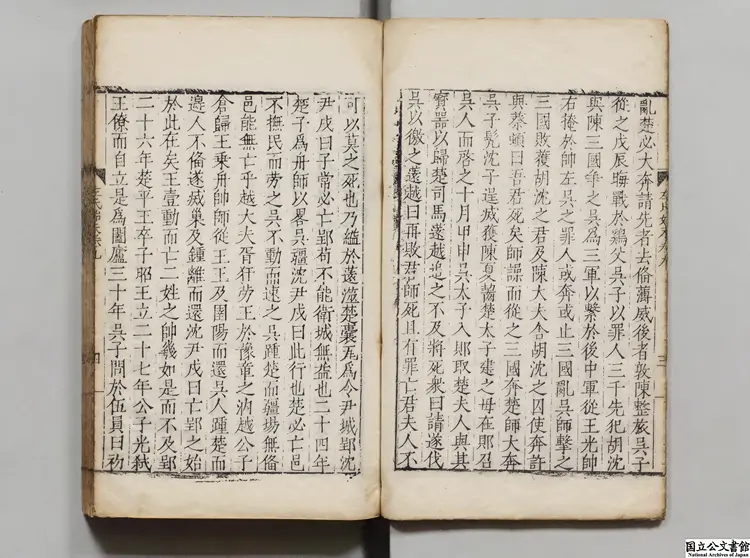 亂楚必大奔請先者去備薄威後者敦陳整旅吳子
從之戊辰晦戰於鷄父吳子以罪人三千先犯胡沈
與陳三國爭之吳爲三軍以繫於後中軍從王光帥
右掩餘帥左吳之罪人或奔或止三國亂吳師擊之
三國敗獲胡沈之君及陳大夫舍胡沈之囚使奔許
與蔡頓曰吾君死矣師譟而從之三國奔楚師大奔
吳子髠沈子逞滅獲陳夏齧楚太子建之母在郹召
吳人而啓之十月甲申吳太子入郹取楚夫人與其
寶器以歸楚司馬薳越追之不及將死衆曰請遂伐
吳以徼之薳越曰再敗君師死且有罪亡君夫人不
可以莫之死也乃縊於薳澨楚囊瓦爲令尹城郢沈
尹戌曰子常必亡郢苟不能衛城無益也二十四年
楚子爲舟師以畧吳疆沈尹戌曰此行也楚必亡邑
不撫民而勞之吳不動而速之吳踵楚而疆埸無備
邑能無亡乎越大夫胥犴勞王於豫章之汭越公子
倉歸王乘舟帥師從王王及圉陽而還吳人踵楚而
邊人不備遂滅巢及鍾離而還沈尹戌曰亡郢之始
於此在矣王壹動而亡二姓之帥幾如是而不及郢
二十六年楚平王卒子昭王立二十七年公子光弑
王僚而自立是爲闔廬三十年吳子問於伍員曰初
四
三
国立公文書館
National Archives of Japan